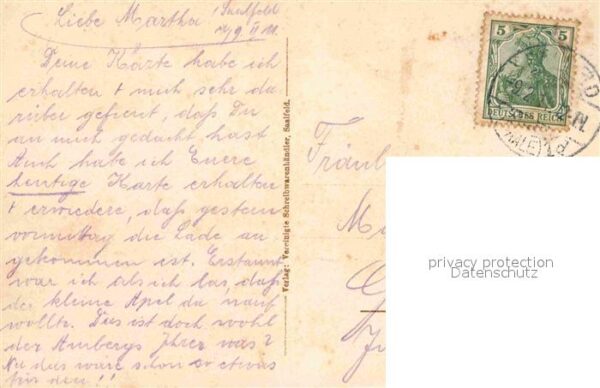 Liebe Martha! Saalfeld
Deine Karte habe ich
erhalten & mich sehr da
rüber gefreut, daß Du
an mich gedacht hast
Auch habe ich Euere
heutige Karte erhalten
& erwiedere, daß gestern
vormittag die Lade an
gekommen ist. Erstaunt
war ich als ich las, daß
der kleine Apel da nauf
wollte. Dies ist doch wohl
der Ambergs Ihrer was?
Nu das wäre schon so etwas
für den!!
Verlag: Vereinigte Schreibwarenhändler, Saalfeld.
5 5
DEUTSCHES REICH
Fräul
privacy protection
Datenschutz